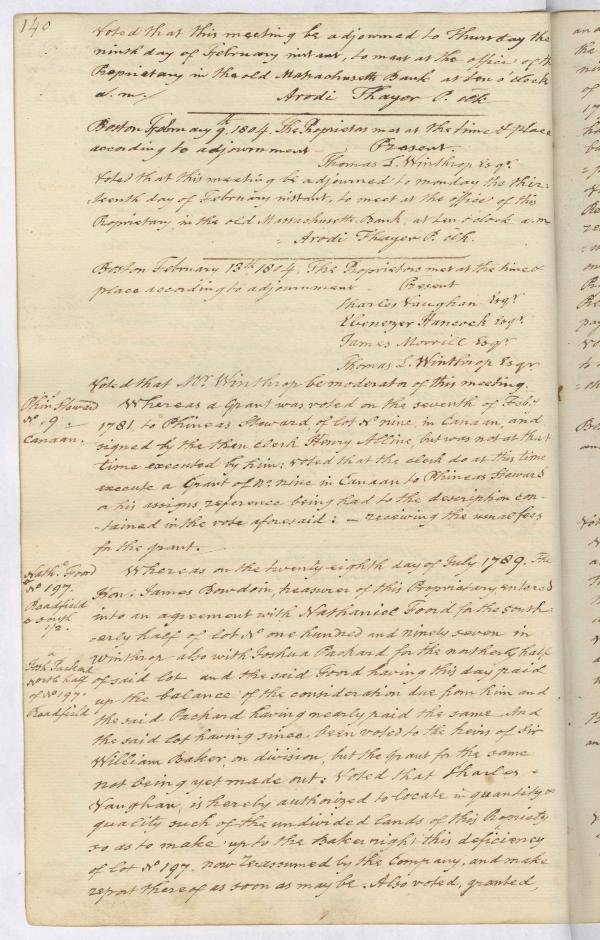 140
Voted that this meeting be adjourned to Thursday the
ninth day of February instant, to meet at the office of th
Proprietary in the old Massachusetts Bank at ten o'clock
a. m.
Arodi Thayer P. Clk
Boston February 9th. 1804. The Proprietors met at the time & place
according to adjournment Present.
Thomas L. Winthrop Esqr.
Voted that this meeting be adjourned to monday the thir-
-teenth day of February instant, to meet at the office of this
Proprietary in the old Massachusetts Bank, at ten o'clock a. m
Arodi Thayer P. Clk.
Boston February 13th 1804. The Proprietors met at the time &
place according to adjournment Present
Charles Vaughan Esqr
Ebenezer Hancock Esqr.
James Morrill Esqr.
Thomas L. Winthrop Esqr
Voted that Mr. Winthrop be moderator of this meeting.
Phins Steward
No. 9
Canaan.
Whereas a Grant was voted on the seventh of Feby
1781, to Phineas Steward of lot No nine, in Canaan, and
signed by the then clerk Henry Alline, but was not at that
time executed by him: voted that the clerk do at this time
execute a Grant of No. nine in Canaan to Phineas Steward
or his assigns reference being had to the description con-
-tained in the vote aforesaid: — receiving the usual fees
for the grant.
Nathl. Foord
No 197.
Readfield
South
1/2.
Josha Packard
north half
of No 197.
Readfield
Whereas on the twenty eighth day of July 1789. The
Hon. James Bowdoin, treasurer of this Proprietary, entered
into an agreement with Nathaniel Foord for the south-
-erly half of lot No one hundred and ninety seven in
Winthrop also with Joshua Packard for the northerly half
of said lot and the said Foord having this day paid
up the balance of the consideration due from him and
the said Packard having nearly paid the same And
the said lot having since been voted to the heirs of Sir
William Baker, on division, but the grant for the same
not being yet made out: Voted that Charles
Vaughan, is hereby authorized to locate in quantity &
quality such of the undivided lands of this Propriety
so as to make up to the Baker right this deficiency
of lot No 197. now reassumed by the Company, and make
report thereof as soon as may be. Also voted, granted,